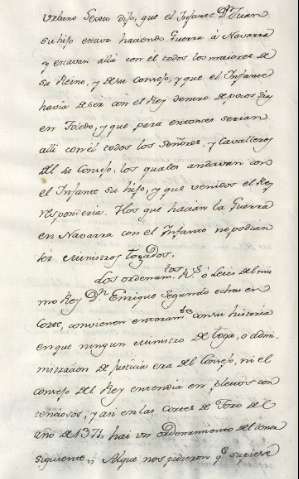 Urbano Sexto dijo, que el Infante Dn. Juan
su hijo estava haciendo Guerra à Navarra
y estavan allà con el todos los maiores de
su Reino, y de su consejo, y que el Infante
havia de ser con el Rey dentro de pocos dias
en Toledo, y que para entonces serian
alli con èl todos los Señores, y Cavalleros
del su Consejo, los quales andavan con
el Infante su hijo, y que venidos el Rey
responderia. Y los que hacian la Guerra
en Navarra con el Infante no podian
ser Ministros togados.
Los ordenamtos. Rs. ò Leies del mis
mo Rey Dn. Enrique Segundo echas en
Cortes, convienen con su historia
en que ningun Ministro de toga, ò admi
nistracion de justicia era del Consejo, ni el
consejo del Rey entendia en pleitos con
tenciosos, y asi en las cortes de Toro del
año de 1371, hai un ordenamiento del tenor
siguiente A lo que nos pidieron qe.